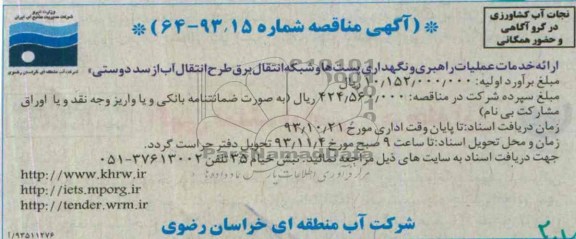 نجات آب کشاورزی
در گرو آگاهی
و حضور همگانی
(آگهی مناقصه شماره ۱۵-۹۳-۶۴)
وزارت نیرو
شرکت مدیریت منابع آب ایران
شرکت آب منطقه ای خراسان رضوی
ارائه خدمات عملیات راهبری و نگهداری پست ها و شبکه انتقال برق طرح انتقال آب از سد دوستی»
مبلغ برآورد اولیه: ۱۰,۱۵۲,۰۰۰,۰۰۰ ریال
مبلغ سپرده شرکت در مناقصه: ۴۲۴,۵۶۰,۰۰۰ ریال (به صورت ضمانتنامه بانکی و یا واریز وجه نقد و یا اوراق
مشارکت بی نام)
زمان دریافت اسناد: تا پایان وقت اداری مورخ ۹۳,۱۰,۲۱
زمان و محل تحویل اسناد: تا ساعت ۹ صبح مورخ ۹۳,۱۱,۴ تحویل دفتر حراست گردد.
جهت دریافت اسناد به سایت های ذیل مراجعه نمائید: نبش خیام ۳۵ تلفن ۳۷۶۱۳۰۰۲-۰۵۱
http://www.khrw.ir
http://iets.mporg.ir
http://tender.wrm.ir
شرکت آب منطقه ای خراسان رضوی
۹۳۵۱۱۲۷۶/آ